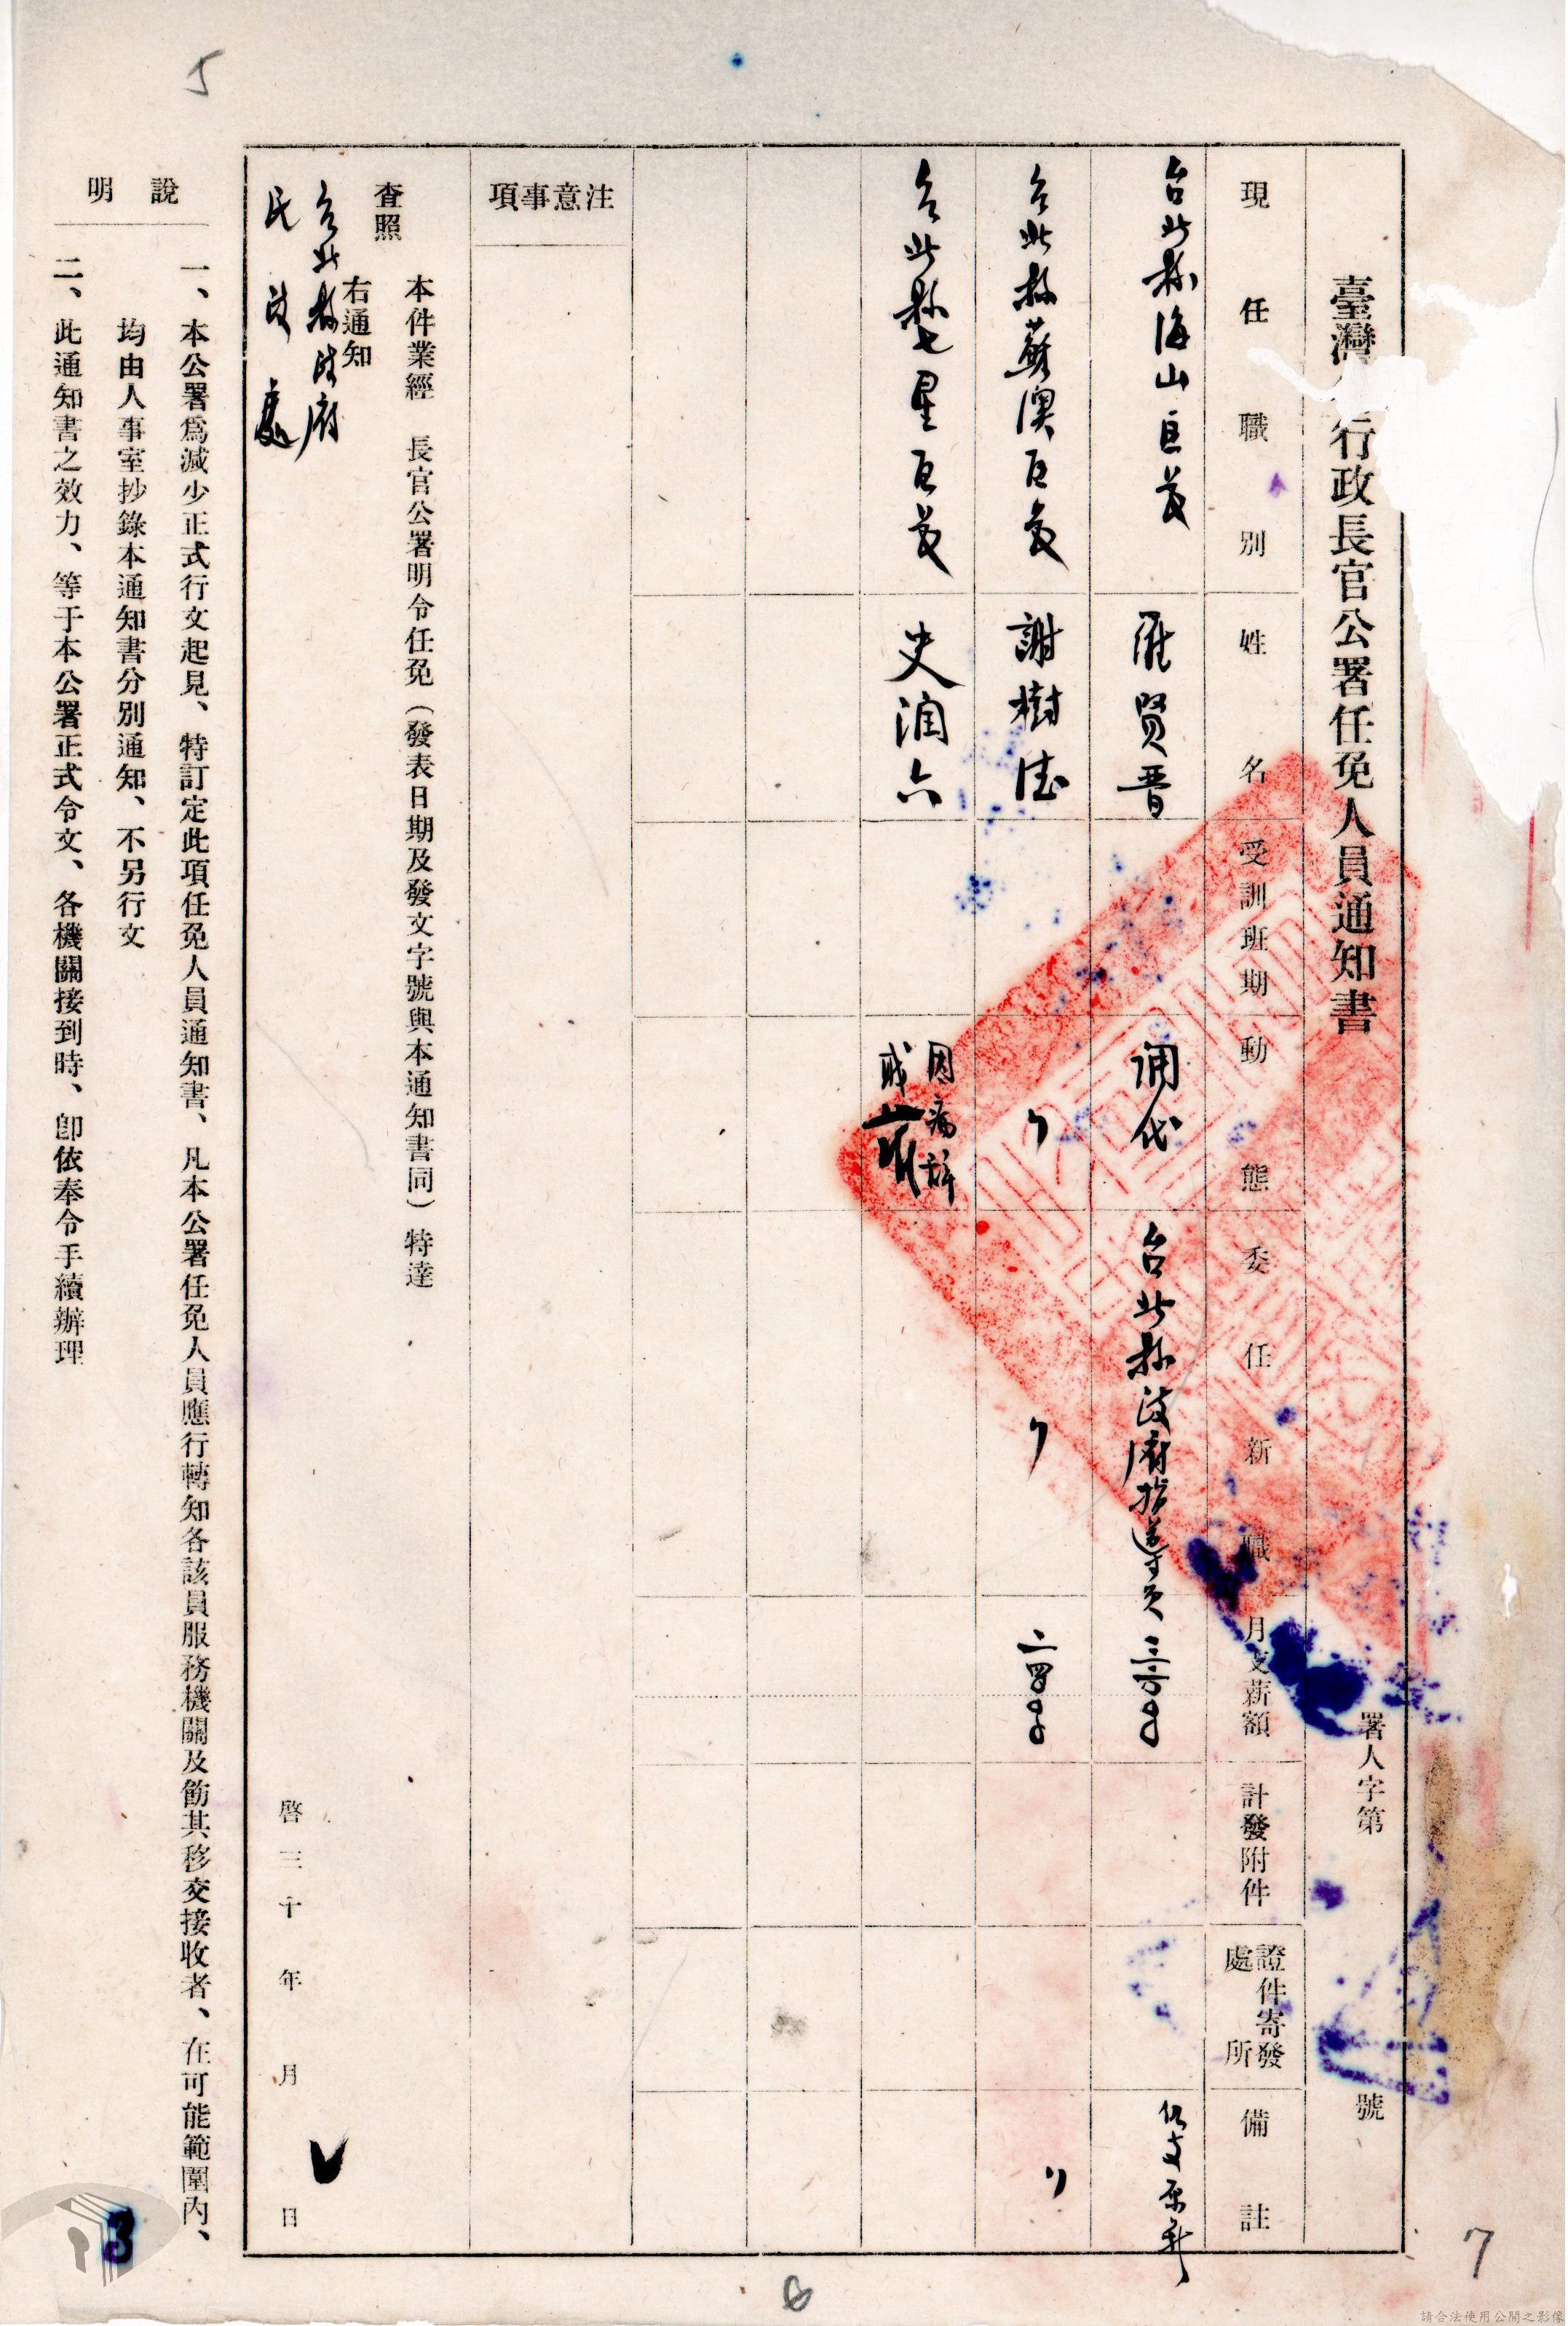 臺灣行政長官公署任免人員通知書
署人字第 號
現任職別 姓名 受訓班期 動態 委任新職 月支薪額 計發附件 證件寄發處所 備註
台北縣海山區長 賢晋 調代 台北縣政府指導員 仍支原薪
台北縣蘇澳區長 謝樹
台北縣七星區長 史潤六 因病辭職
注意事項
本件業經 長官公署明令任免（發表日期及發文字號與本通知書同）特達
查照
右通知
台北縣政府
民政處
啓 三十 年 月 日
說明
一、本公署爲減少正式行文起見、特訂定此項任免人員通知書、凡本公署任免人員應行轉知各該員服務機關及飭其移交接收者、在可能範圍內、
均由人事室抄錄本通知書分別通知、不另行文
二、此通知書之效力、等于本公署正式令文、各機關接到時、卽依奉令手續辦理
5
7
3
請合法使用公開之影像